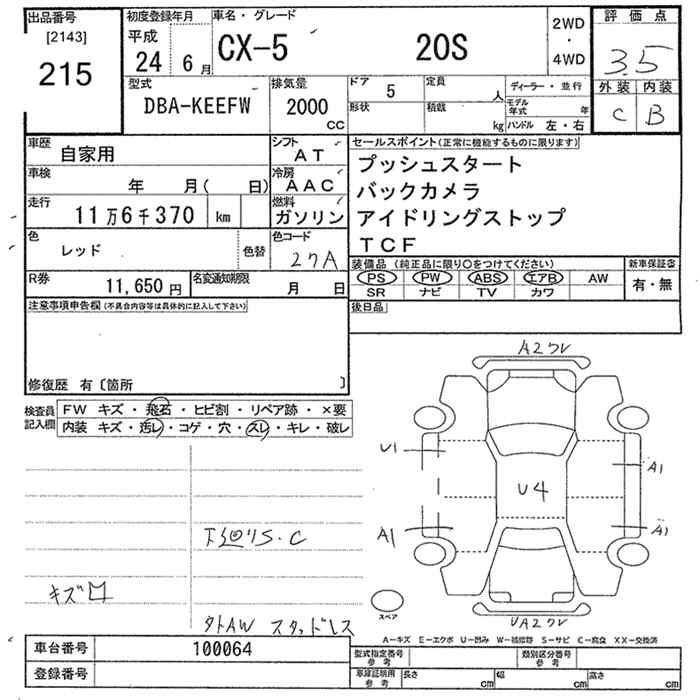 出品番号 初度登録年月 車名・グレード 評価点
[2143] 平成 CX-5 20S 2WD ・ 4WD 3.5
215 24 6月 外装 内装
型式 排気量 ドア 5 定員 人 ディーラー・並行 C B
DBA-KEEFW 2000 CC 形状 積載 kg モデル年式 年
ハンドル 左・右
車歴 自家用 シフト AT セールスポイント(正常に機能するものに限ります)
車検 年 月( 日) 冷房 AAC プッシュスタート
走行 11万6千370 km 燃料 ガソリン バックカメラ
色 レッド 色替 色コード 27A アイドリングストップ
TCF
R券 11,650円 名変通知期限 月 日 装備品 (純正品に限り○をつけてください) 新車保証書
PS PW ABS エアB AW 有・無
SR ナビ TV カワ
注意事項申告欄(不具合内容等は具体的に記入して下さい) 後日品
修復歴 有〔箇所 〕
検査員記入欄 FW キズ・飛石・ヒビ割・リペア跡・×要
内装 キズ・汚レ・コゲ・穴・スレ・キレ・破レ
A2ワレ
U1
A1
U4
A1 A1
下廻りS.C
キズ
外AW スタッドレス
スペア
UA2ワレ
A-キズ E-エクボ U-凹み W-補修跡 S-サビ C-腐食 XX-交換済
車台番号 100064 型式指定番号 参考 類別区分番号 参考
登録番号 車庫証明用 参考 長さ cm 幅 cm 高さ cm